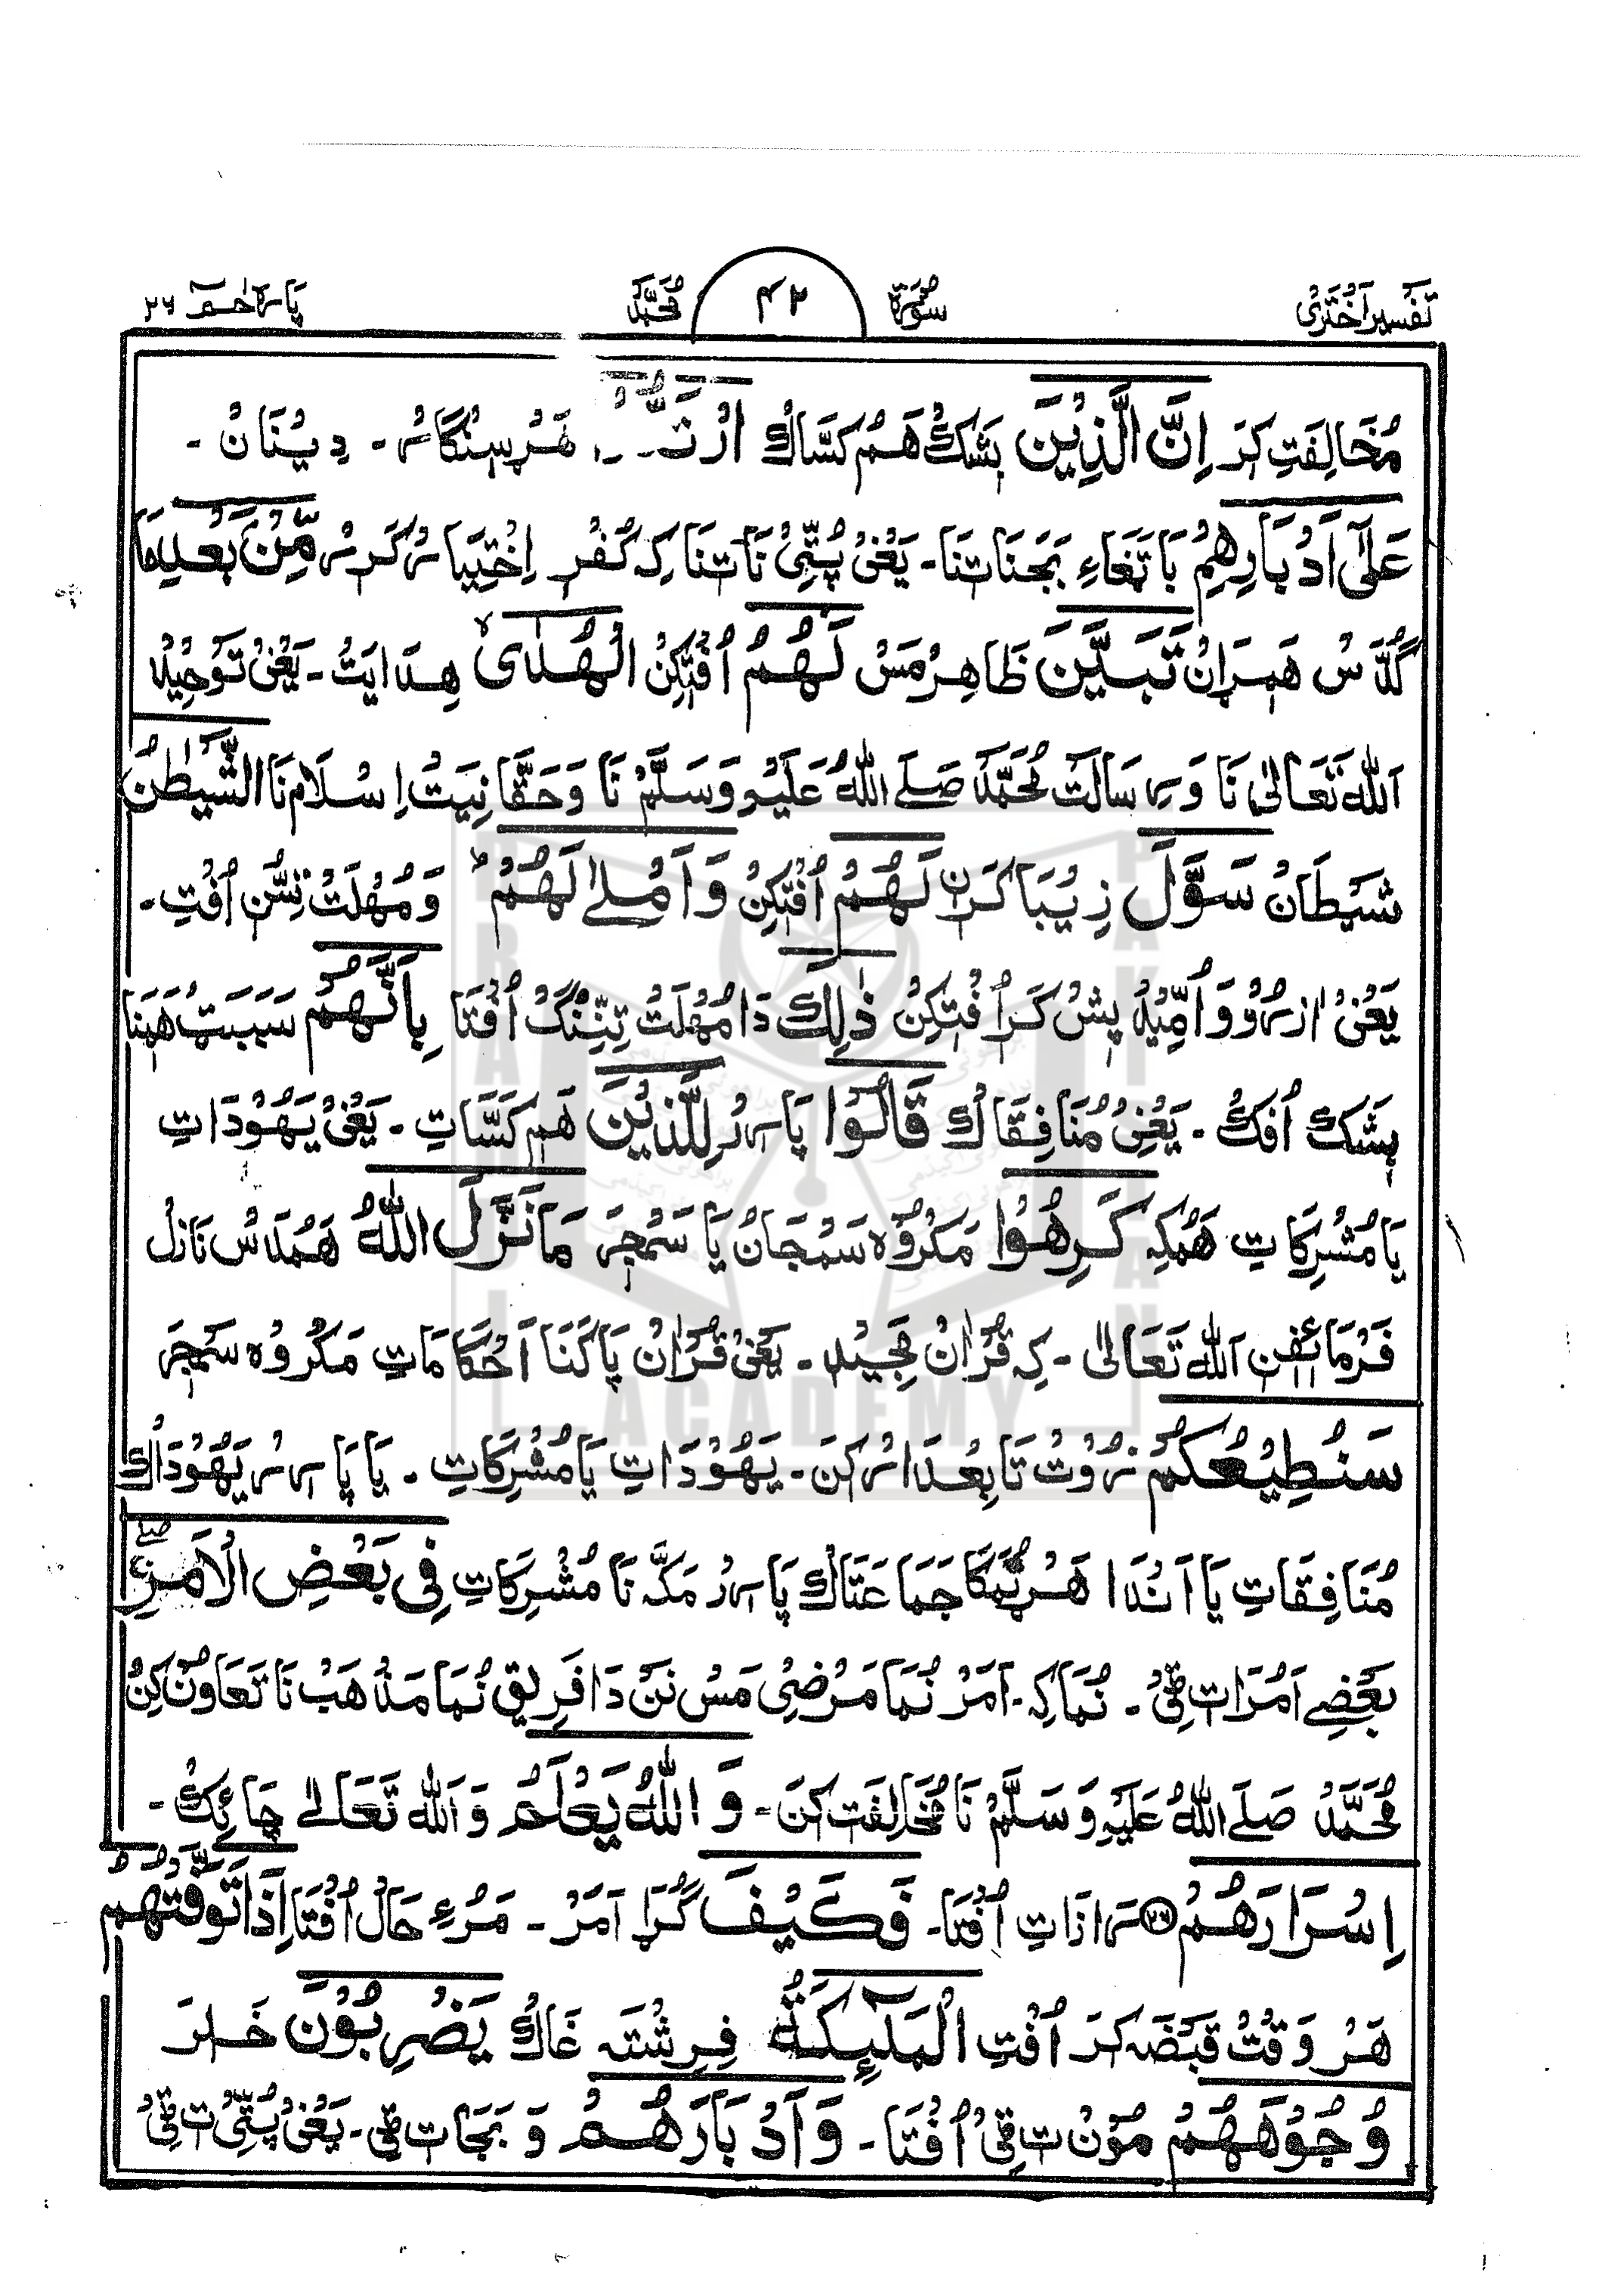 تفسیر اختری
سورة ۴۲ محمد
پاره حٰم ۲۶
مُخَالِفَتِ کَرَ اِنَّ الَّذِیْنَ بَشَکْ هَمْ کَسَّاكْ هَرْسِنْگَارْ۔ دِیْنَانْ۔
عَلٰۤی اَدْبَارِهِمْ بَا تَغَاءِ بَجَنَاتنَا۔ یَعْنِیْ پُتِّیْ نَاتنَا کِہ کُفْرِ اِخْتِیَار کَرِرْ مِّنْ بَعْدِ مَا
گُدَّسْ هَمِرَانْ تَبَیَّنَ ظَاهِرْمَسْ لَهُمُ اُفْتِکِنْ الْهُدَی هِدَایَتْ۔ یَعْنِیْ تَوْحِیْدْ
اَللهُ تَعَالٰی نَا وَ رِسَالَتْ مُحَمَّدْ صَلَے اللهُ عَلَیْہِ وَسَلَّمْ نَا وَحَقَّانِیَتْ اِسْلَام نَا الشَّیْطٰنُ
شَیْطَانْ سَوَّلَ زِیْبَا کَرِن لَهُمْ اُفْتِکِنْ وَ اَمْلٰی لَهُمْ وَ مُهْلَتْ تِسُّنْ اُفْتِ۔
یَعْنِیْ اَرْزُوْ وَ اُمِّیْدْ پِشْ کَرِ اُفْتِکِنْ ذٰلِكَ دَا مُهْلَتْ تِنِّنْگْ اُفْتَا بِاَنَّهُمْ سَبَبَتْ هَنَا
بِشَکْ اُفَكْ۔ یَعْنِیْ مُنَافِقَاكْ قَالُوْا پَارِرْ لِلَّذِیْنَ هَم کَسَّاتِ۔ یَعْنِیْ یَهُوْدَاتِ
یَا مُشْرِکَاتِ هَمْکِہ کَرِهُوْا مَکْرُوْہ سَمْجَانْ یَا سَمْجِرَ مَا نَزَّلَ اللهُ هَمْدَسْ نَازِلْ
فَرْمَائِفِن اَللهُ تَعَالٰی۔ کِہ قُرْاٰنْ مَجِیْدِ۔ یَعْنِیْ قُرْاٰنْ پَاکَنَا اَحْکَامَاتِ مَکْرُوْہ سَمْجِرَ
سَنُطِیْعُکُمْ رُوْتْ تَابِعْدَارْ کَن۔ یَهُوْدَاتِ یَا مُشْرِکَاتِ۔ یَا پَارِرْ یَهُوْدَاكْ
مُنَافِقَاتِ یَا اَنْدَا هَرْتُمَکَا جَمَاعَتَاكْ پَارِرْ مَکَّہ نَا مُشْرِکَاتِ فِیْ بَعْضِ الْاَمْرِ
بَعْضِے اَمْرَاتِ ٹِیْ۔ نُمَا کِہ۔ اَمَرْ نُمَا مَرْضِیْ مَسْ نَنْ دَا فَرِیْقِ نُمَا مَذْهَبْ نَا تَعَاوُنْ کِنْ
مُحَمَّدْ صَلَے اللهُ عَلَیْہِ وَسَلَّمْ نَا مُخَالِفَت کِنَ۔ وَ اللهُ یَعْلَمُ وَ اَللهُ تَعَالٰے چَائِكْ۔
اِسْرَارَهُمْ ۲۶ رَازَاتِ اُفْتَا۔ فَکَیْفَ گُڑَا اَمَرْ۔ مَرُءِ حَالْ اُفْتَا اِذَا تَوَفَّتْهُمُ
هَرْ وَقْتْ قَبْضَہ کَرَ اُفْتِ الْمَلٰٓئِکَةُ فِرِشْتَہ غَاكْ یَضْرِبُوْنَ خَلِرَ
وُجُوْهَهُمْ مُوْنْ ت ٹِیْ اُفْتَا۔ وَ اَدْبَارَهُمْ وَ بَجَات ٹِیْ۔ یَعْنِیْ پُتِّیْ ت ٹِیْ
PAKISTAN
ACADEMY